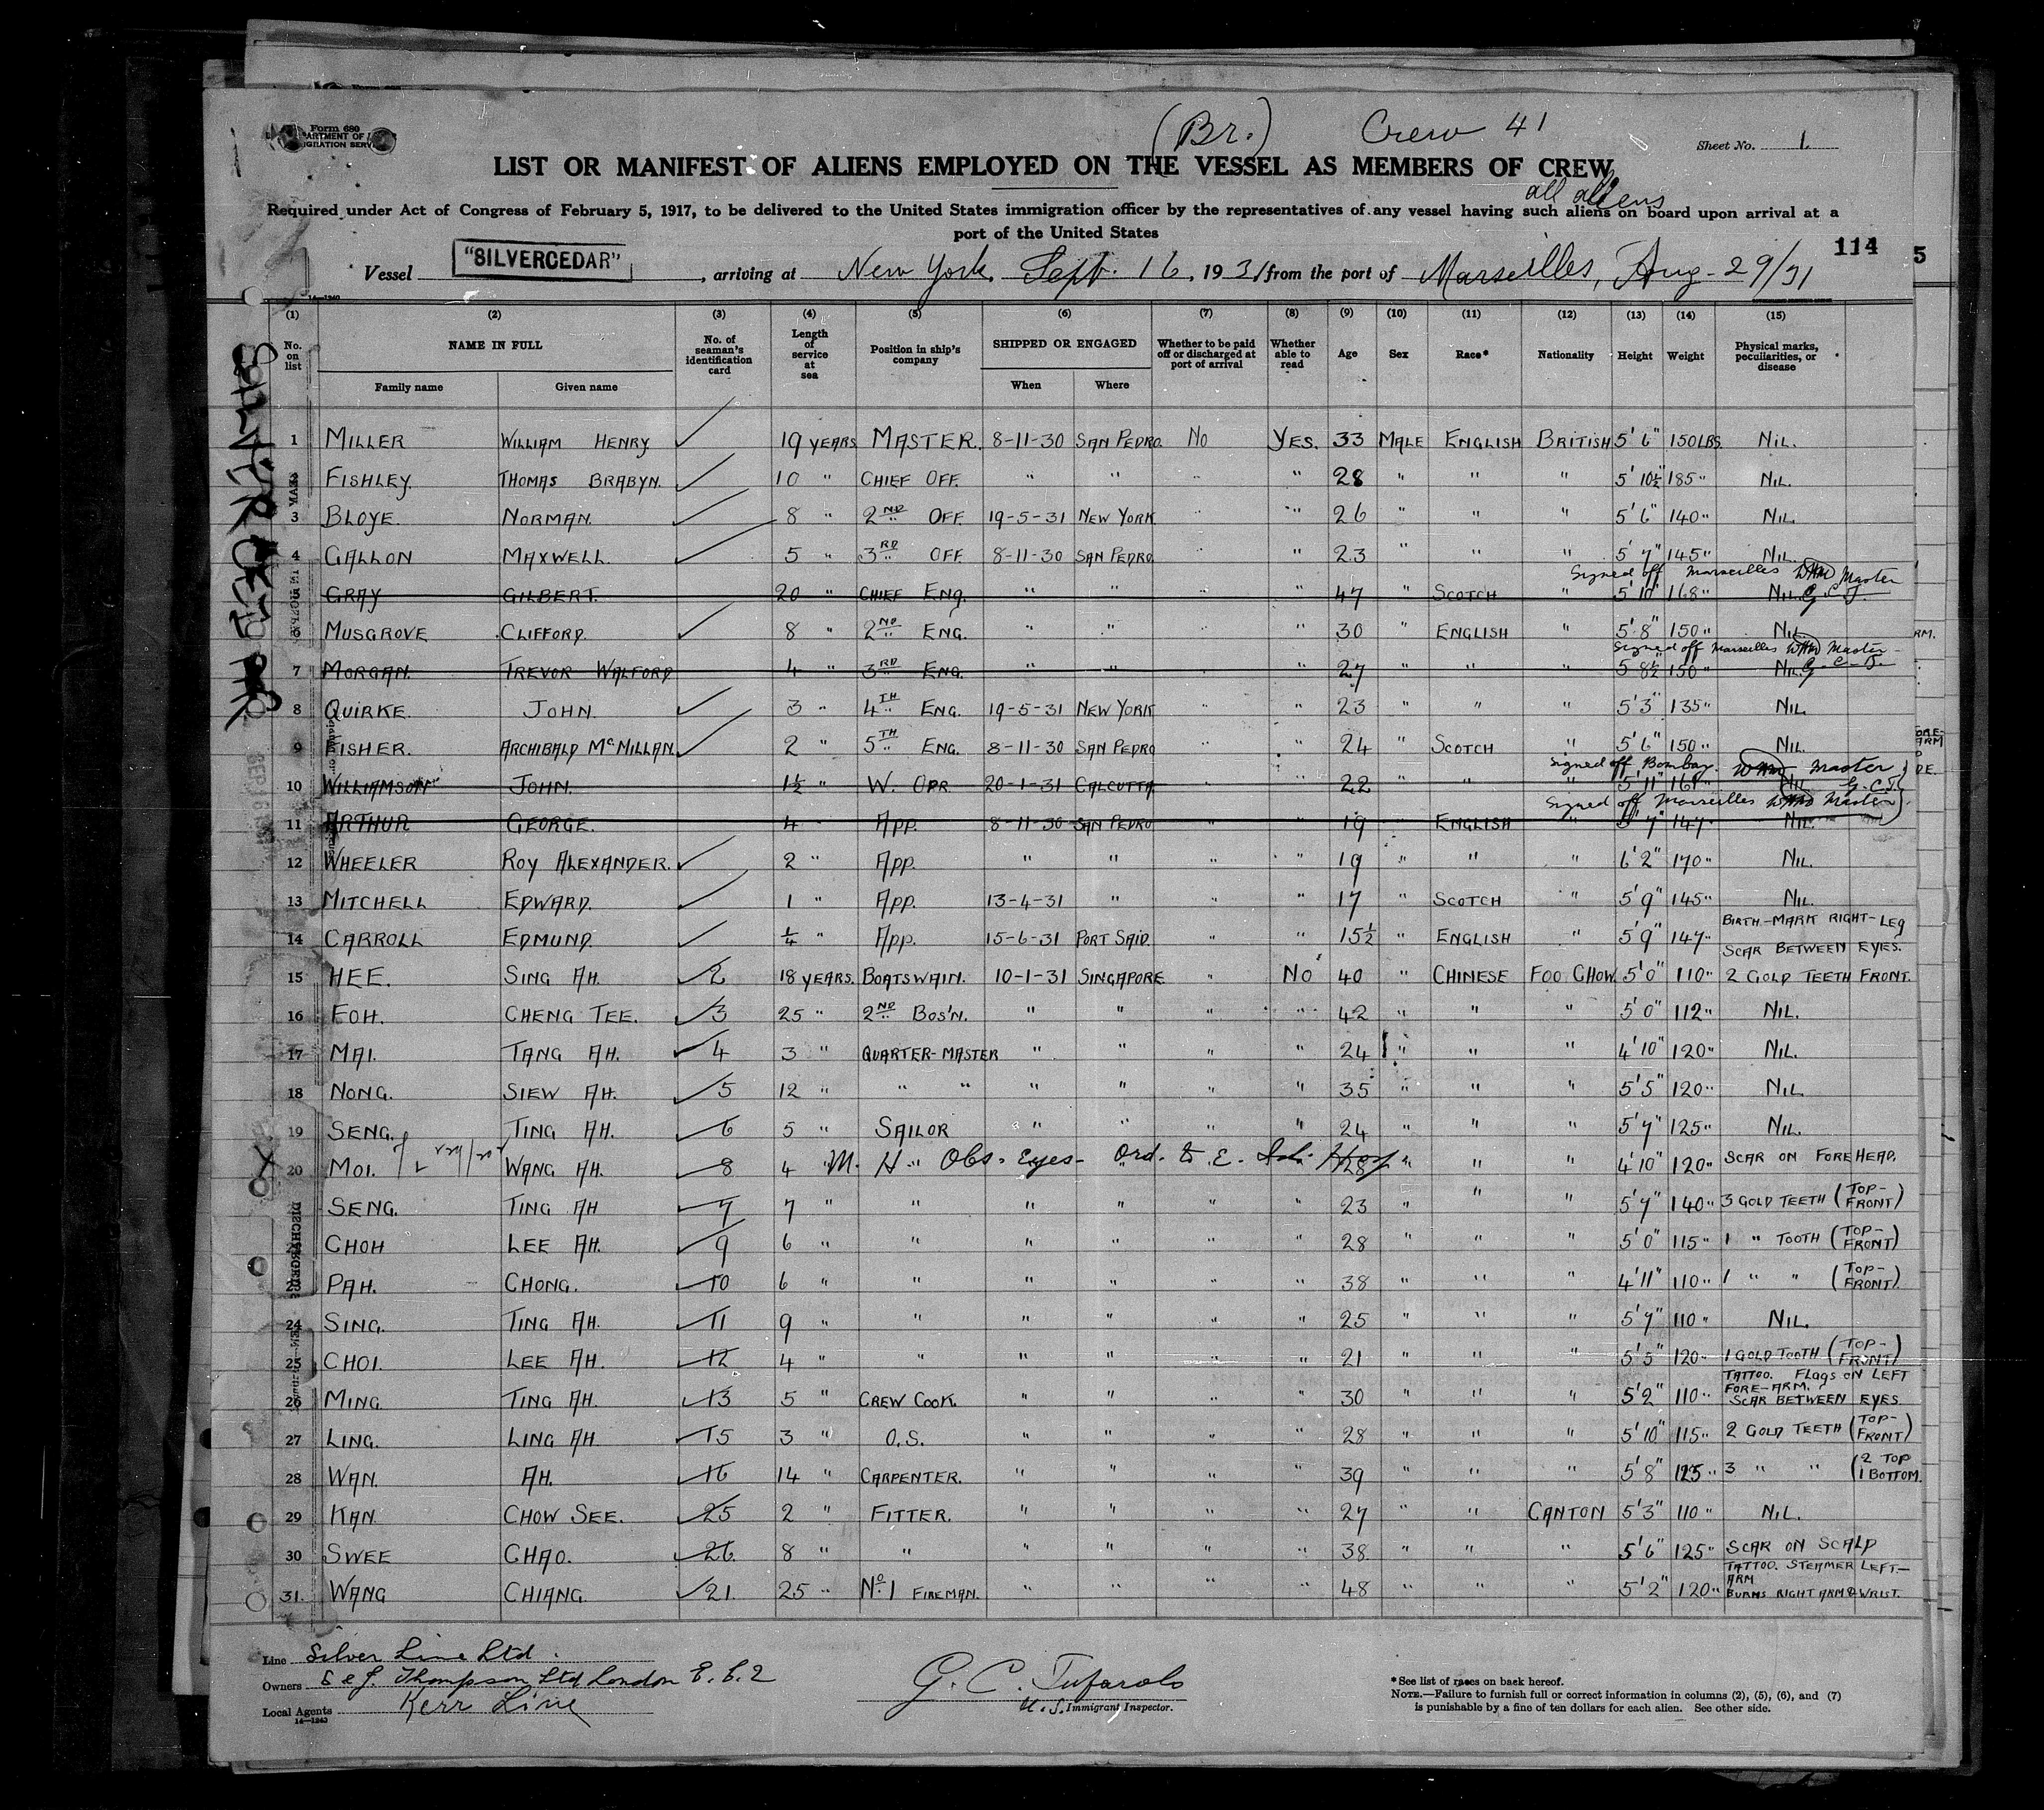 Form 680
(Br.) Crew 41
Sheet No. 1
LIST OR MANIFEST OF ALIENS EMPLOYED ON THE VESSEL AS MEMBERS OF CREW
all aliens
Required under Act of Congress of February 5, 1917, to be delivered to the United States immigration officer by the representatives of any vessel having such aliens on board upon arrival at a
port of the United States
114 5
Vessel "SILVERCEDAR", arriving at New York, Sept. 16, 1931 from the port of Marseilles, Aug - 29/31
(1) (2) (3) (4) (5) (6) (7) (8) (9) (10) (11) (12) (13) (14) (15)
No. on list NAME IN FULL Family name Given name No. of seaman's identification card Length of service at sea Position in ship's company SHIPPED OR ENGAGED When Where Whether to be paid off or discharged at port of arrival Whether able to read Age Sex Race* Nationality Height Weight Physical marks, peculiarities, or disease
1 MILLER WILLIAM HENRY 19 YEARS MASTER. 8-11-30 SAN PEDRO. No YES. 33 MALE ENGLISH BRITISH 5' 6" 150 LBS. NIL.
FISHLEY. THOMAS BRABYN. 10 " CHIEF OFF. " " " " 28 " " " 5' 10½ 185 " NIL.
3 BLOYE. NORMAN. 8 " 2ND OFF. 19-5-31 NEW YORK " " 26 " " " 5' 6" 140 " NIL.
4 GALLON MAXWELL. 5 " 3RD OFF. 8-11-30 SAN PEDRO " " 23 " " " 5' 7" 145 " NIL.
Signed off Marseilles WHM Master
5 GRAY GILBERT. 20 " CHIEF ENG. " " " " 47 " SCOTCH " 5' 10" 168 " NIL. G.C.T.
6 MUSGROVE CLIFFORD. 8 " 2ND ENG. " " " " 30 " ENGLISH " 5' 8" 150 " NIL.
Signed off Marseilles WHM Master
7 MORGAN. TREVOR WALFORD 4 " 3RD ENG. " " " " 27 " " " 5' 8½ 150 " NIL. G.C.T.
8 QUIRKE. JOHN. 3 " 4TH ENG. 19-5-31 NEW YORK " " 23 " " " 5' 3" 135 " NIL.
9 FISHER. ARCHIBALD McMILLAN. 2 " 5TH ENG. 8-11-30 SAN PEDRO " " 24 " SCOTCH " 5' 6" 150 " NIL.
Signed off Bombay. WHM Master
10 WILLIAMSON JOHN. 1½ " W. OPR. 20-1-31 CALCUTTA " " 22 " " " 5' 11" 161 " NIL G.C.T.
Signed off Marseilles WHM Master
11 ARTHUR GEORGE. 4 " APP. 8-11-30 SAN PEDRO " " 19 " ENGLISH " 5' 7" 147 " NIL.
12 WHEELER ROY ALEXANDER. 2 " APP. " " " " 19 " " " 6' 2" 170 " NIL.
13 MITCHELL EDWARD. 1 " APP. 13-4-31 " " " 17 " SCOTCH " 5' 9" 145 " NIL.
14 CARROLL EDMUND. ¼ " APP. 15-6-31 PORT SAID. " " 15½ " ENGLISH " 5' 9" 147 " BIRTH-MARK RIGHT-LEG SCAR BETWEEN EYES.
15 HEE. SING AH. 2 18 YEARS. BOATSWAIN. 10-1-31 SINGAPORE " NO 40 " CHINESE FOO CHOW. 5' 0" 110 " 2 GOLD TEETH FRONT.
16 FOH. CHENG TEE. 3 25 " 2ND BOS'N. " " " " 42 " " " 5' 0" 112 " NIL.
17 MAI. TANG AH. 4 3 " QUARTER-MASTER " " " " 24 " " " 4' 10" 120 " NIL.
18 NONG. SIEW AH. 5 12 " " " " " " " 35 " " " 5' 5" 120 " NIL
19 SENG. TING AH. 6 5 " SAILOR " " " " 24 " " " 5' 7" 125 " NIL.
20 MOI. WANG AH. 8 4 " M. H. Obs. Eyes - Ord. to E. Isl. Hosp 28 " " " 4' 10" 120 " SCAR ON FOREHEAD.
SENG. TING AH 7 7 " " " " " " 23 " " " 5' 7" 140 " 3 GOLD TEETH (TOP-FRONT)
CHOH LEE AH. 9 6 " " " " " " 28 " " " 5' 0" 115 " 1 " TOOTH (TOP-FRONT)
23 PAH. CHONG. 10 6 " " " " " " 38 " " " 4' 11" 110 " 1 " " (TOP-FRONT)
24 SING. TING AH. 11 9 " " " " " " 25 " " " 5' 7" 110 " NIL.
25 CHOI. LEE AH. 12 4 " " " " " " 21 " " " 5' 5" 120 " 1 GOLD TOOTH (TOP-FRONT)
26 MING. TING AH. 13 5 " CREW COOK. " " " " 30 " " " 5' 2" 110 " TATTOO. FLAGS ON LEFT FORE-ARM. SCAR BETWEEN EYES.
27 LING. LING AH 15 3 " O.S. " " " " 28 " " " 5' 10" 115 " 2 GOLD TEETH (TOP-FRONT)
28 WAN. AH. 16 14 " CARPENTER. " " " " 39 " " " 5' 8" 125 " 3 " " (2 TOP 1 BOTTOM.
29 KAN CHOW SEE. 25 2 " FITTER. " " " " 27 " " CANTON 5' 3" 110 " NIL.
30 SWEE CHAO. 26 8 " " " " " " 38 " " " 5' 6" 125 " SCAR ON SCALP
31. WANG CHIANG. 21. 25 " No 1 FIREMAN. " " " " 48 " " " 5' 2" 120 " TATTOO. STEAMER LEFT-ARM BURNS RIGHT ARM & WRIST.
SILVERCEDAR
Line Silver Line Ltd.
Owners S & J. Thompson Ltd London E.C.2
Local Agents Kerr Line
14-1240
G. C. Tufarolo
U.S. Immigrant Inspector.
*See list of races on back hereof.
NOTE.—Failure to furnish full or correct information in columns (2), (5), (6), and (7)
is punishable by a fine of ten dollars for each alien. See other side.